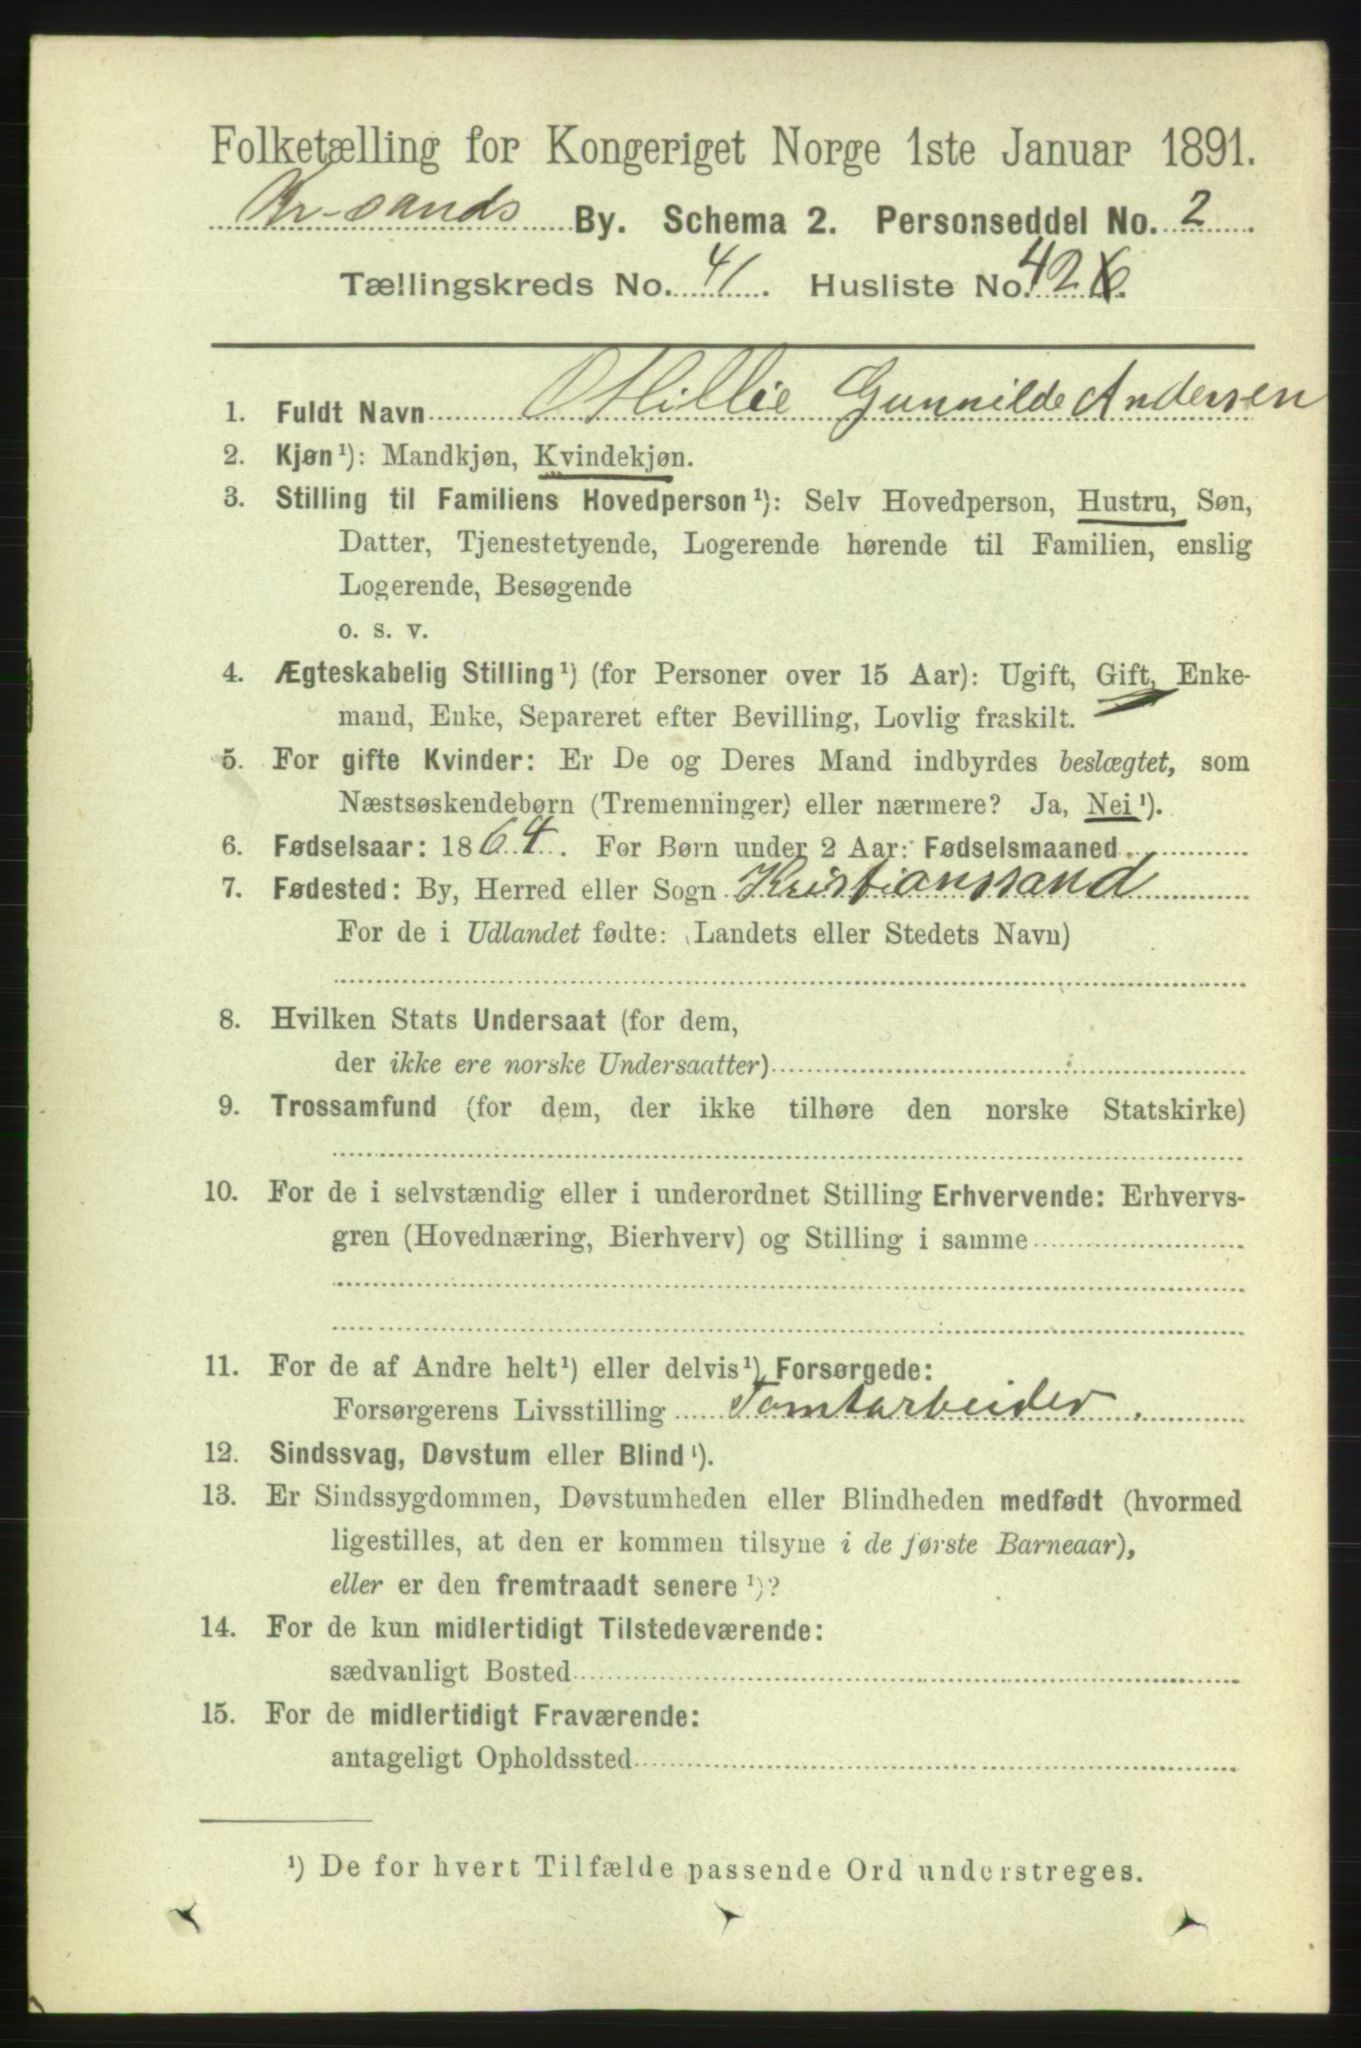 Folketælling for Kongeriget Norge 1ste Januar 1891.
Kr-sands By. Schema 2. Personseddel No. 2
Tællingskreds No. 41. Husliste No. 42
1. Fuldt Navn Othillie Gunnilde Andersen
2. Kjøn¹): Mandkjøn, Kvindekjøn.
3. Stilling til Familiens Hovedperson¹): Selv Hovedperson, Hustru, Søn,
Datter, Tjenestetyende, Logerende hørende til Familien, enslig
Logerende, Besøgende
o. s. v.
4. Ægteskabelig Stilling¹) (for Personer over 15 Aar): Ugift, Gift, Enke-
mand, Enke, Separeret efter Bevilling, Lovlig fraskilt.
5. For gifte Kvinder: Er De og Deres Mand indbyrdes beslægtet, som
Næstsøskendebørn (Tremenninger) eller nærmere? Ja, Nei¹).
6. Fødselsaar: 1864. For Børn under 2 Aar: Fødselsmaaned
7. Fødested: By, Herred eller Sogn Kristianssand
For de i Udlandet fødte: (Landets eller Stedets Navn)
8. Hvilken Stats Undersaat (for dem,
der ikke ere norske Undersaatter)
9. Trossamfund (for dem, der ikke tilhøre den norske Statskirke)
10. For de i selvstændig eller i underordnet Stilling Erhvervende: Erhvervs-
gren (Hovednæring, Bierhverv) og Stilling i samme
11. For de af Andre helt¹) eller delvis¹) Forsørgede:
Forsørgerens Livsstilling Tomtarbeider.
12. Sindssvag, Døvstum eller Blind¹).
13. Er Sindssygdommen, Døvstumheden eller Blindheden medfødt (hvormed
ligestilles, at den er kommen tilsyne i de første Barneaar),
eller er den fremtraadt senere¹)?
14. For de kun midlertidigt Tilstedeværende:
sædvanligt Bosted
15. For de midlertidigt Fraværende:
antageligt Opholdssted
¹) De for hvert Tilfælde passende Ord understreges.